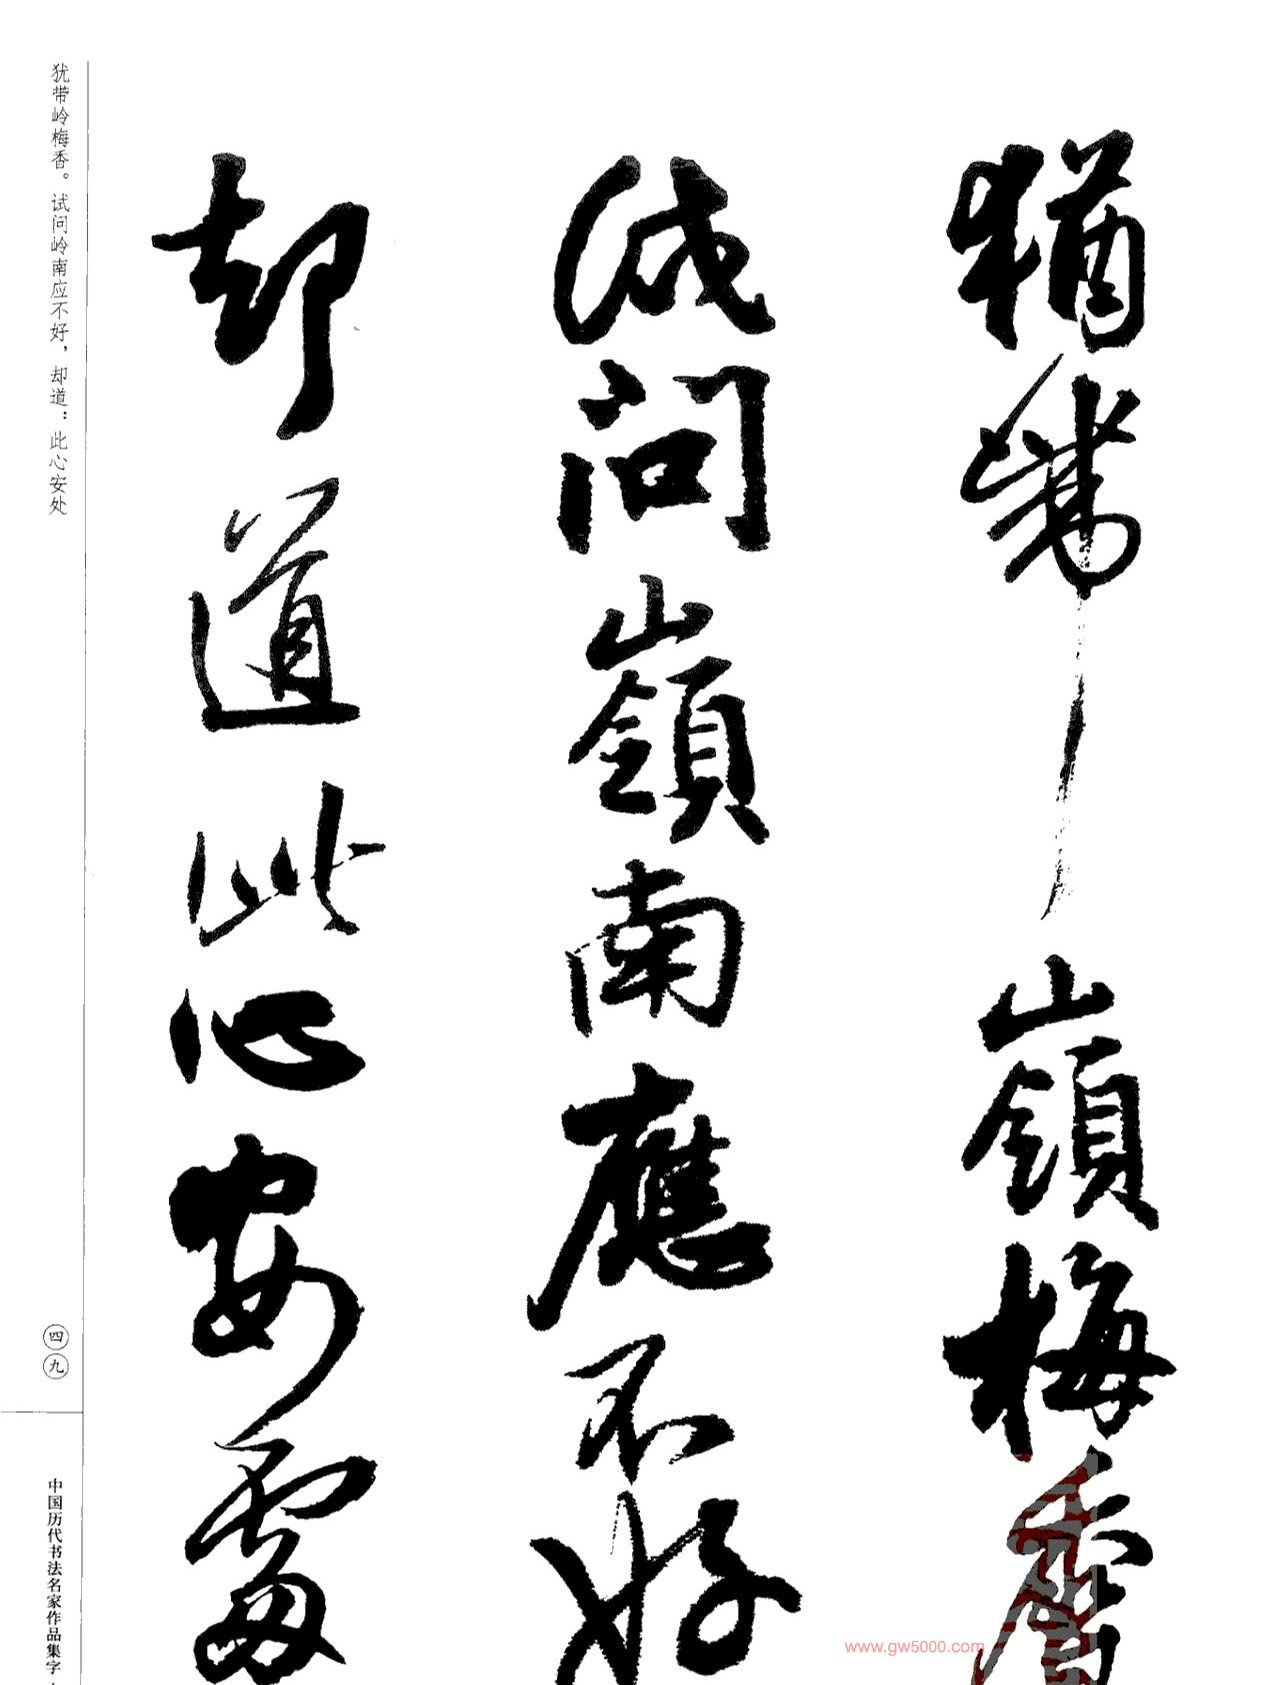 猶帶嶺梅香
试问嶺南應不好
却道此心安處
犹带岭梅香。试问岭南应不好，却道：此心安处
四九
中国历代书法名家作品集字
www.gw5000.com